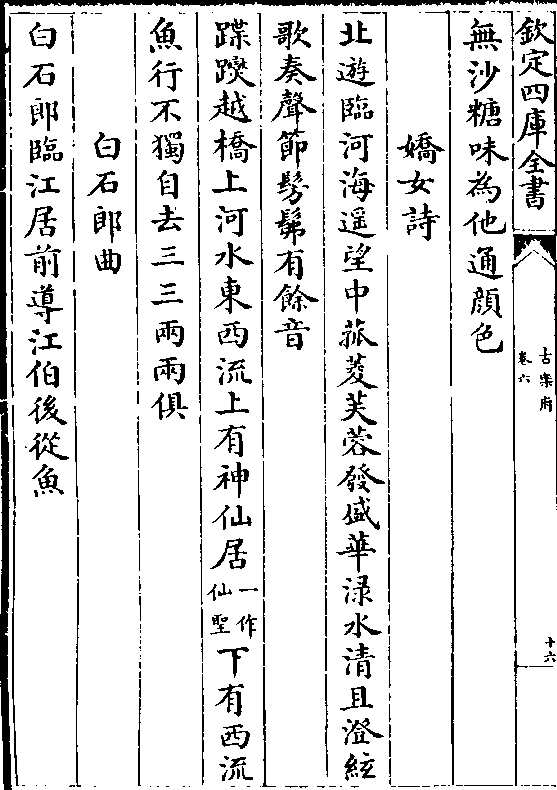 欽定四庫全書
古樂府
卷六
十六
無沙糖味為他通顔色
嬌女詩
北遊臨河海遥望中菰菱芙蓉發盛華渌水清且澄絃
歌奏聲節髣髴有餘音
蹀躞越橋上河水東西流上有神仙居一作仙聖下有西流
魚行不獨自去三三兩兩俱
白石郎曲
白石郎臨江居前導江伯後從魚